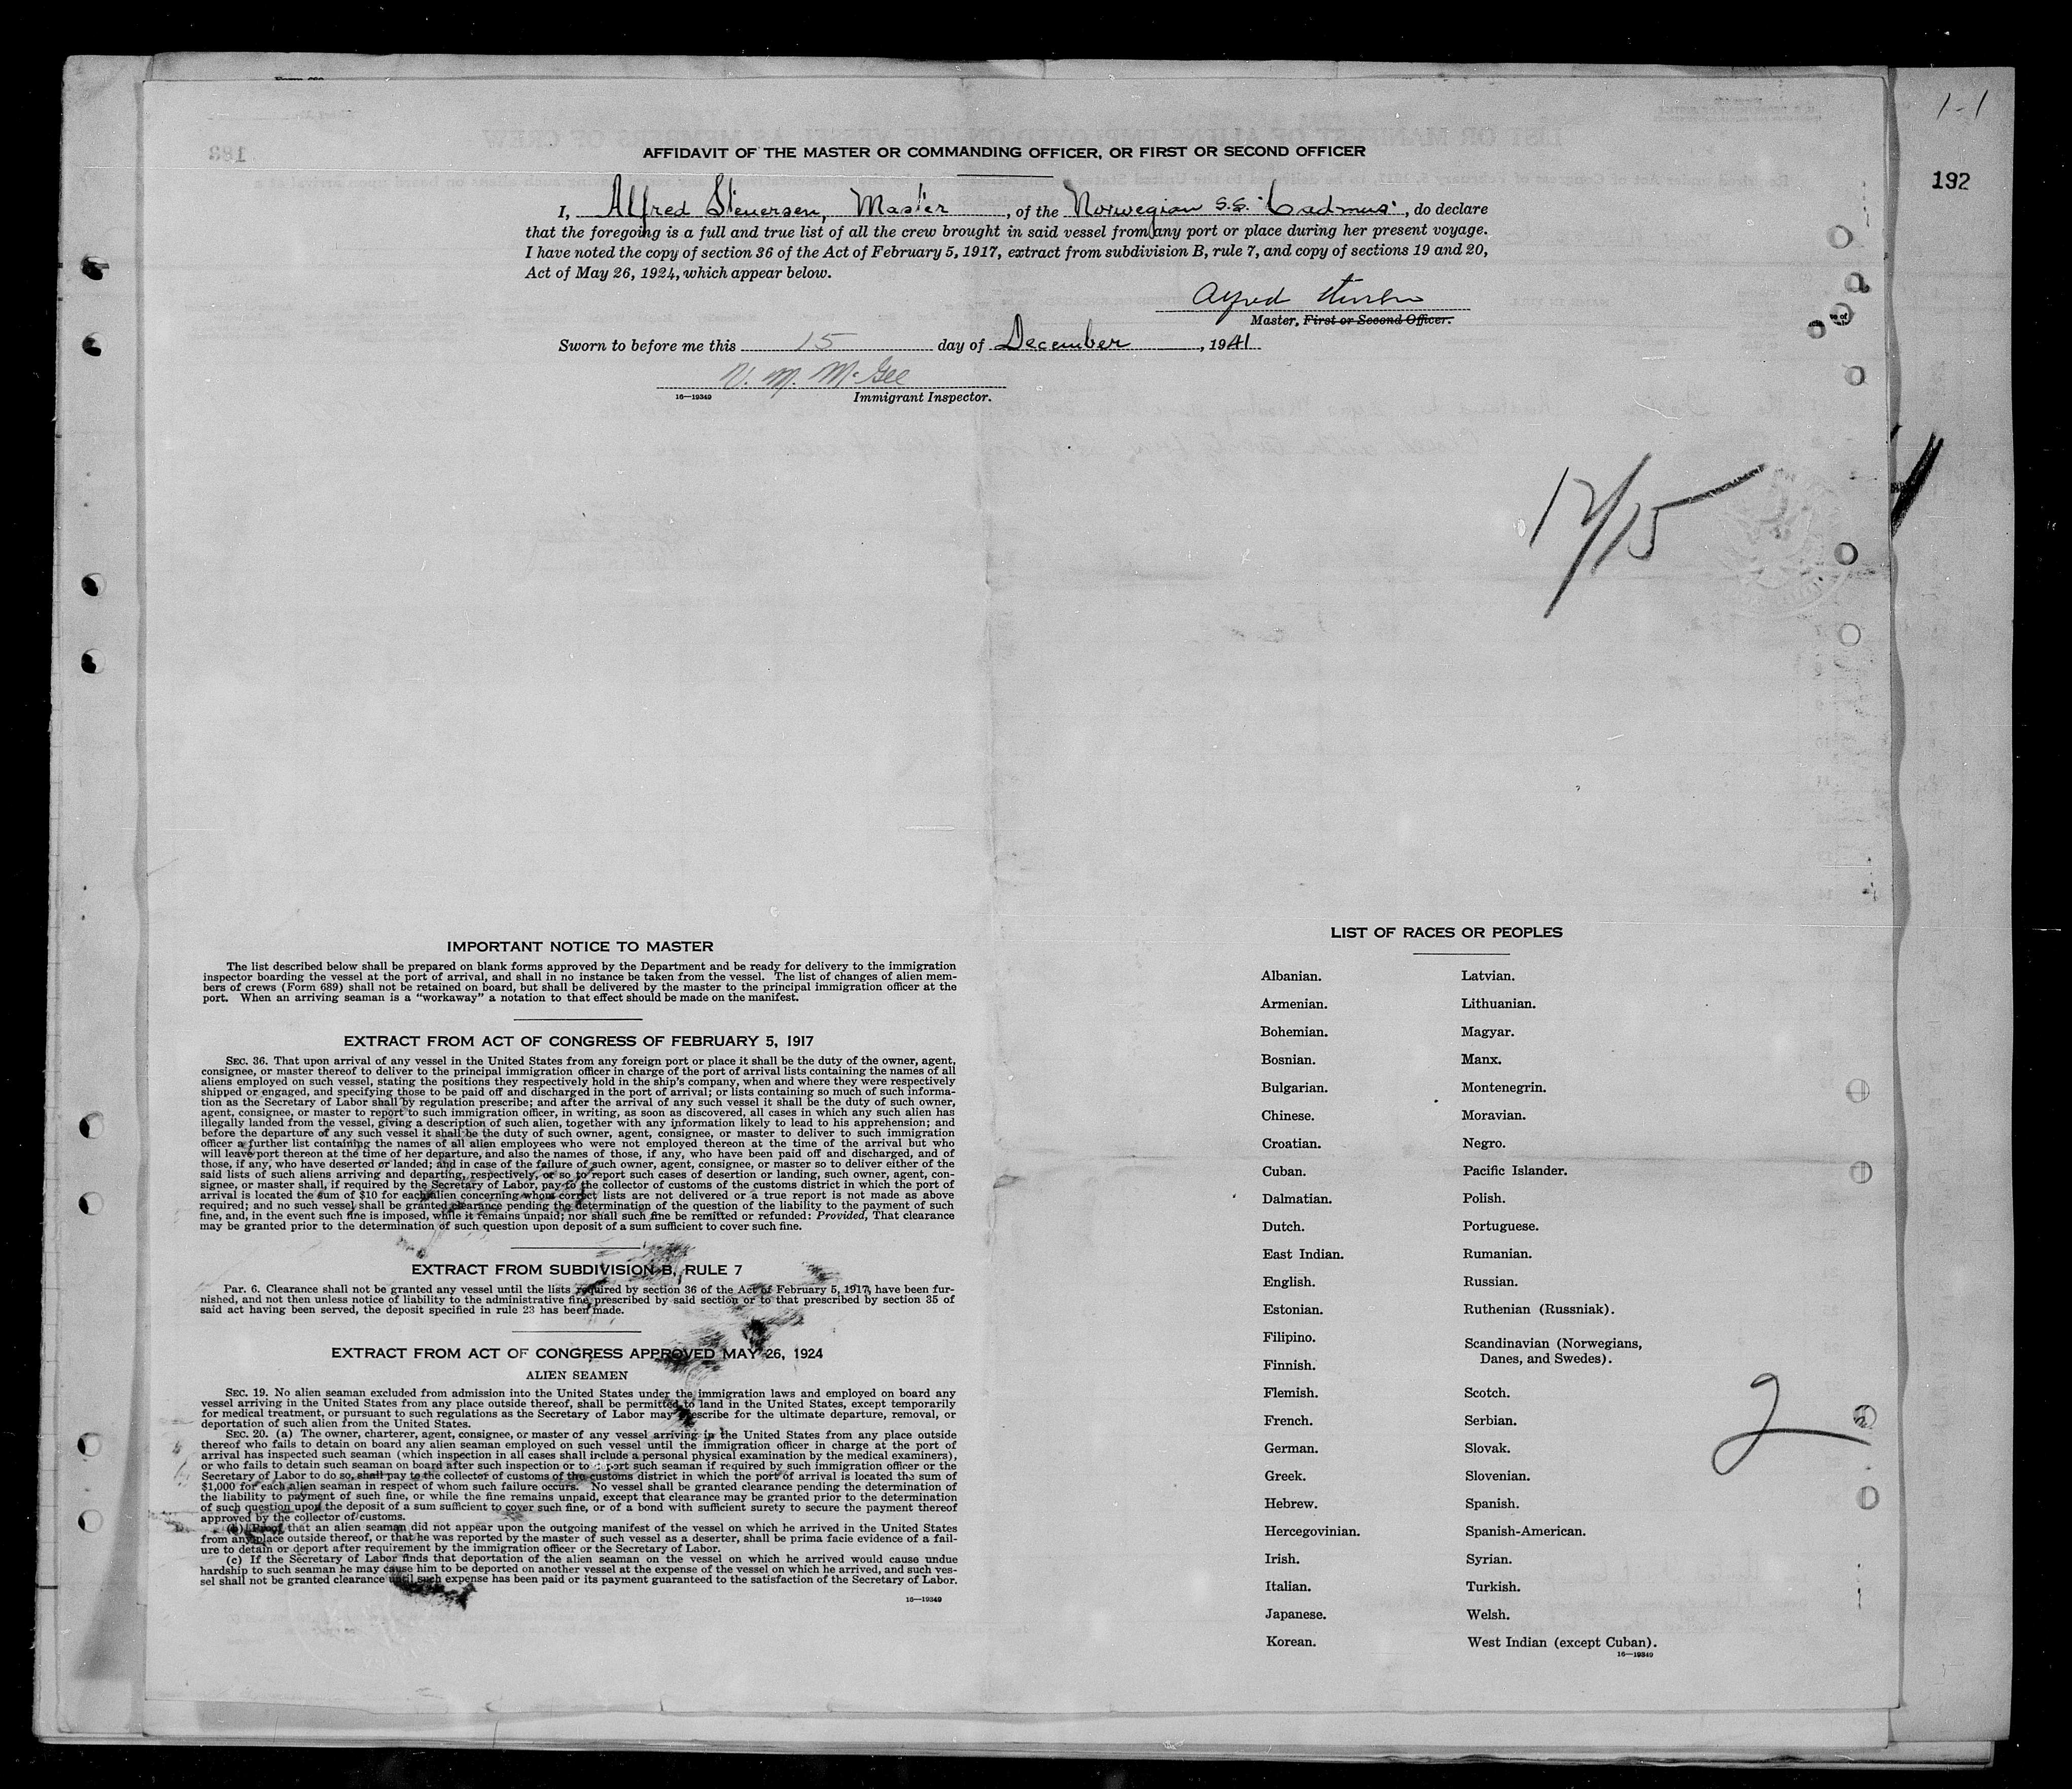 1-1
192
AFFIDAVIT OF THE MASTER OR COMMANDING OFFICER, OR FIRST OR SECOND OFFICER
I, Alfred Steuersen, Master, of the Norwegian S.S. "Cadmus", do declare
that the foregoing is a full and true list of all the crew brought in said vessel from any port or place during her present voyage.
I have noted the copy of section 36 of the Act of February 5, 1917, extract from subdivision B, rule 7, and copy of sections 19 and 20,
Act of May 26, 1924, which appear below.
Alfred
Master, First or Second Officer.
Sworn to before me this 15 day of December, 1941
V. M. McGee
16—19349 Immigrant Inspector.
12/15
IMPORTANT NOTICE TO MASTER
The list described below shall be prepared on blank forms approved by the Department and be ready for delivery to the immigration
inspector boarding the vessel at the port of arrival, and shall in no instance be taken from the vessel. The list of changes of alien mem-
bers of crews (Form 689) shall not be retained on board, but shall be delivered by the master to the principal immigration officer at the
port. When an arriving seaman is a "workaway" a notation to that effect should be made on the manifest.
EXTRACT FROM ACT OF CONGRESS OF FEBRUARY 5, 1917
SEC. 36. That upon arrival of any vessel in the United States from any foreign port or place it shall be the duty of the owner, agent,
consignee, or master thereof to deliver to the principal immigration officer in charge of the port of arrival lists containing the names of all
aliens employed on such vessel, stating the positions they respectively hold in the ship's company, when and where they were respectively
shipped or engaged, and specifying those to be paid off and discharged in the port of arrival; or lists containing so much of such informa-
tion as the Secretary of Labor shall by regulation prescribe; and after the arrival of any such vessel it shall be the duty of such owner,
agent, consignee, or master to report to such immigration officer, in writing, as soon as discovered, all cases in which any such alien has
illegally landed from the vessel, giving a description of such alien, together with any information likely to lead to his apprehension; and
before the departure of any such vessel it shall be the duty of such owner, agent, consignee, or master to deliver to such immigration
officer a further list containing the names of all alien employees who were not employed thereon at the time of the arrival but who
will leave port thereon at the time of her departure, and also the names of those, if any, who have been paid off and discharged, and of
those, if any, who have deserted or landed; and in case of the failure of such owner, agent, consignee, or master so to deliver either of the
said lists of such aliens arriving and departing, respectively, or so to report such cases of desertion or landing, such owner, agent, con-
signee, or master shall, if required by the Secretary of Labor, pay to the collector of customs of the customs district in which the port of
arrival is located the sum of $10 for each alien concerning whom correct lists are not delivered or a true report is not made as above
required; and no such vessel shall be granted clearance pending the determination of the question of the liability to the payment of such
fine, and, in the event such fine is imposed, while it remains unpaid; nor shall such fine be remitted or refunded: Provided, That clearance
may be granted prior to the determination of such question upon deposit of a sum sufficient to cover such fine.
EXTRACT FROM SUBDIVISION B, RULE 7
PAR. 6. Clearance shall not be granted any vessel until the lists required by section 36 of the Act of February 5, 1917, have been fur-
nished, and not then unless notice of liability to the administrative fine prescribed by said section or to that prescribed by section 35 of
said act having been served, the deposit specified in rule 23 has been made.
EXTRACT FROM ACT OF CONGRESS APPROVED MAY 26, 1924
ALIEN SEAMEN
SEC. 19. No alien seaman excluded from admission into the United States under the immigration laws and employed on board any
vessel arriving in the United States from any place outside thereof, shall be permitted to land in the United States, except temporarily
for medical treatment, or pursuant to such regulations as the Secretary of Labor may prescribe for the ultimate departure, removal, or
deportation of such alien from the United States.
SEC. 20. (a) The owner, charterer, agent, consignee, or master of any vessel arriving in the United States from any place outside
thereof who fails to detain on board any alien seaman employed on such vessel until the immigration officer in charge at the port of
arrival has inspected such seaman (which inspection in all cases shall include a personal physical examination by the medical examiners),
or who fails to detain such seaman on board after such inspection or to deport such seaman if required by such immigration officer or the
Secretary of Labor to do so, shall pay to the collector of customs of the customs district in which the port of arrival is located the sum of
$1,000 for each alien seaman in respect of whom such failure occurs. No vessel shall be granted clearance pending the determination of
the liability to payment of such fine, or while the fine remains unpaid, except that clearance may be granted prior to the determination
of such question upon the deposit of a sum sufficient to cover such fine, or of a bond with sufficient surety to secure the payment thereof
approved by the collector of customs.
(b) Proof that an alien seaman did not appear upon the outgoing manifest of the vessel on which he arrived in the United States
from any place outside thereof, or that he was reported by the master of such vessel as a deserter, shall be prima facie evidence of a fail-
ure to detain or deport after requirement by the immigration officer or the Secretary of Labor.
(c) If the Secretary of Labor finds that deportation of the alien seaman on the vessel on which he arrived would cause undue
hardship to such seaman he may cause him to be deported on another vessel at the expense of the vessel on which he arrived, and such ves-
sel shall not be granted clearance until such expense has been paid or its payment guaranteed to the satisfaction of the Secretary of Labor.
16—19349
LIST OF RACES OR PEOPLES
Albanian.
Armenian.
Bohemian.
Bosnian.
Bulgarian.
Chinese.
Croatian.
Cuban.
Dalmatian.
Dutch.
East Indian.
English.
Estonian.
Filipino.
Finnish.
Flemish.
French.
German.
Greek.
Hebrew.
Hercegovinian.
Irish.
Italian.
Japanese.
Korean.
Latvian.
Lithuanian.
Magyar.
Manx.
Montenegrin.
Moravian.
Negro.
Pacific Islander.
Polish.
Portuguese.
Rumanian.
Russian.
Ruthenian (Russniak).
Scandinavian (Norwegians,
Danes, and Swedes).
Scotch.
Serbian.
Slovak.
Slovenian.
Spanish.
Spanish-American.
Syrian.
Turkish.
Welsh.
West Indian (except Cuban).
16—19349
2